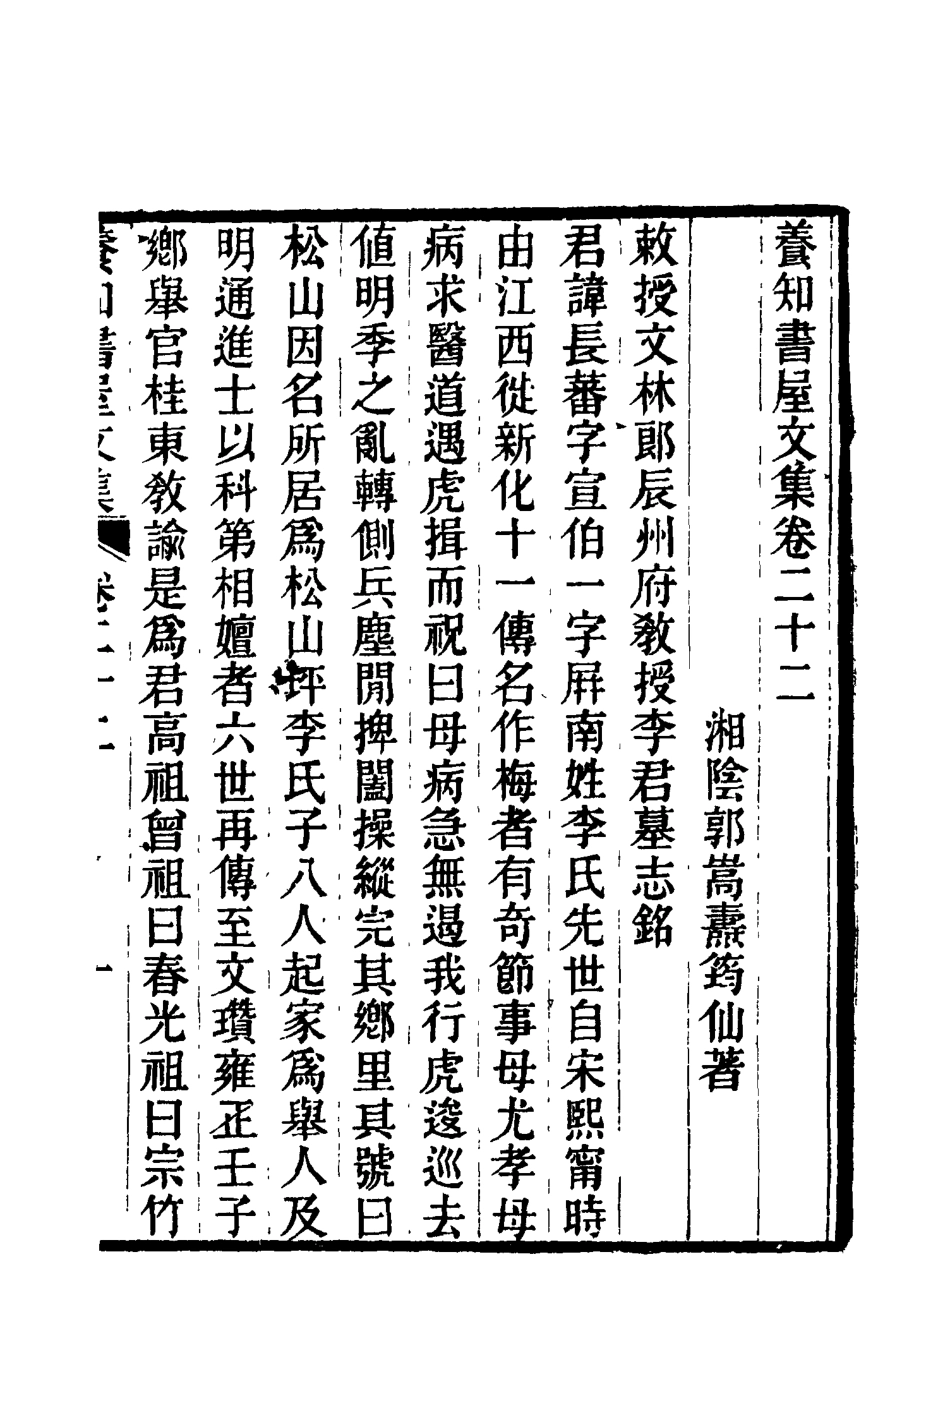 養知書屋文集卷二十二
湘陰郭嵩燾筠仙著
敕授文林郎辰州府敎授李君墓志銘
君諱長蕃字宣伯一字屛南姓李氏先世自宋熙甯時
由江西徙新化十一傳名作梅者有奇節事母尤孝母
病求醫道遇虎揖而祝曰母病急無遏我行虎逡巡去
値明季之亂轉側兵塵閒捭闔操縱完其鄕里其號曰
松山因名所居爲松山坪李氏子八人起家爲舉人及
明通進士以科第相嬗者六世再傳至文瓚雍正壬子
鄕舉官桂東敎諭是爲君高祖曾祖曰春光祖曰宗竹
養知書屋文集 卷二十二 一